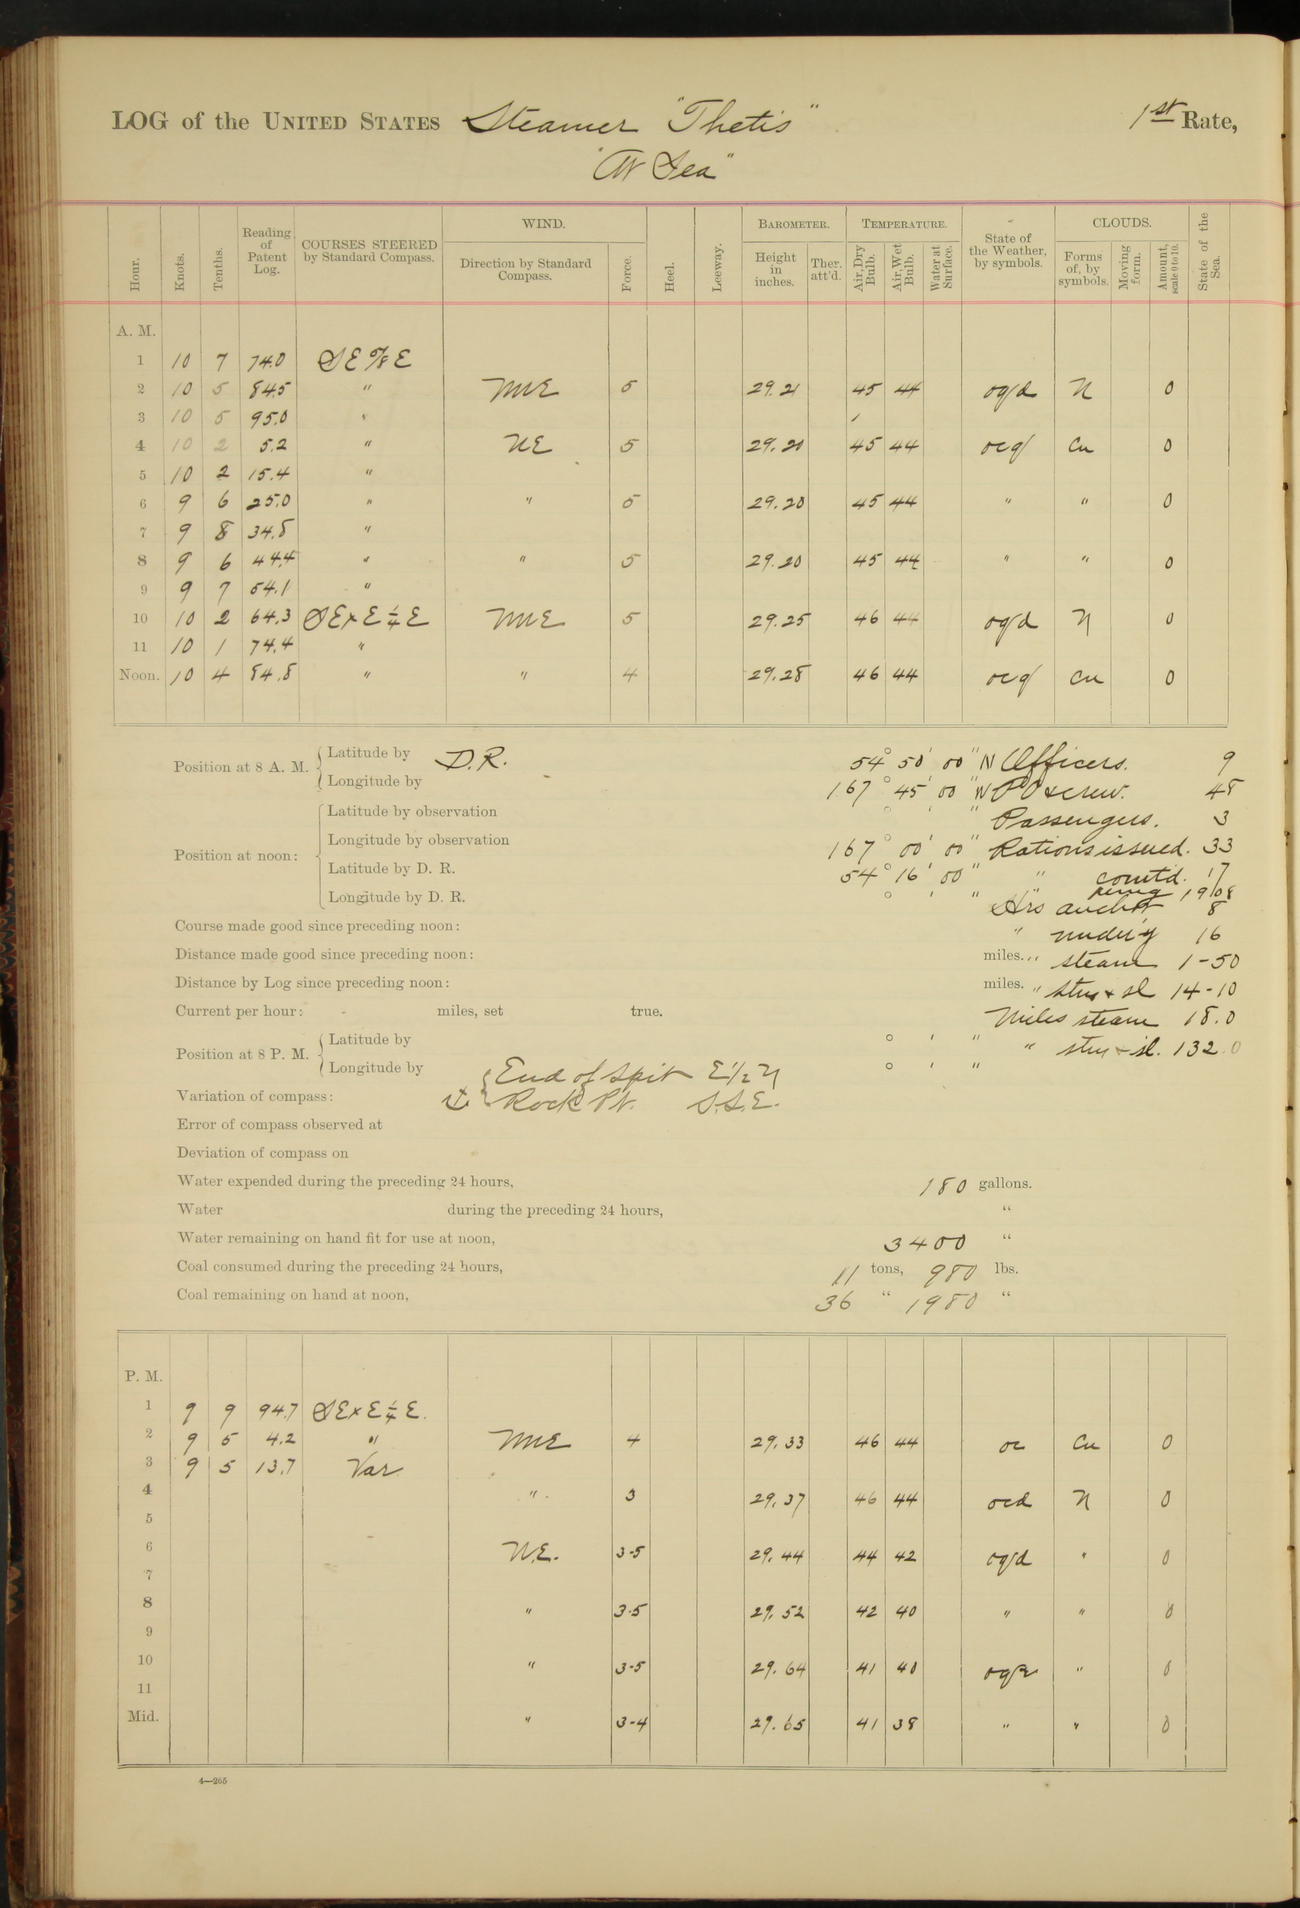 LOG of the UNITED STATES Steamer "Thetis" 1st Rate,
"At Sea"
Hour. Knots. Tenths. Reading of Patent Log. COURSES STEERED by Standard Compass. WIND. Direction by Standard Compass. Force. Heel. Leeway. BAROMETER. Height in inches. Ther. att'd. TEMPERATURE. Air, Dry Bulb. Air, Wet Bulb. Water at Surface. State of the Weather, by symbols. CLOUDS. Forms of, by symbols. Moving form. Amount, scale 0 to 10. State of the Sea.
A. M.
1 10 7 74.0 SE 7/8 E
2 10 5 84.5 " NNE 5 29.21 45 44 ogd N 0
3 10 5 95.0 "
4 10 2 5.2 " NE 5 29.20 45 44 ocg Cu 0
5 10 2 15.4 "
6 9 6 25.0 " " 5 29.20 45 44 " " 0
7 9 8 34.8 "
8 9 6 44.4 " " 5 29.20 45 44 " " 0
9 9 7 54.1 "
10 10 2 64.3 SExE 1/4 E NNE 5 29.25 46 44 ogd N 0
11 10 1 74.4 "
Noon. 10 4 84.8 " " 4 29.28 46 44 ocg Cu 0
Position at 8 A. M. Latitude by D.R. 54° 50' 00" N Officers. 9
Longitude by 167° 45' 00" W PO & crew. 48
Latitude by observation ° ' " Passengers. 3
Position at noon: Longitude by observation 167° 00' 00" Rations issued. 33
Latitude by D. R. 54° 16' 00" " comtd. 17
Longitude by D. R. ° ' " " 1908
Hrs anchor 8
Course made good since preceding noon: " under'y 16
Distance made good since preceding noon: miles. " steam 1-50
Distance by Log since preceding noon: miles. " stm & sl 14-10
Current per hour: miles, set true. Miles steam 18.0
Position at 8 P. M. Latitude by ° ' " " stm & sl. 132.0
Longitude by ° ' "
End of Spit E 1/2 N
Variation of compass: Rock Pt. S.S.E.
Error of compass observed at
Deviation of compass on
Water expended during the preceding 24 hours, 180 gallons.
Water during the preceding 24 hours, "
Water remaining on hand fit for use at noon, 3400 "
Coal consumed during the preceding 24 hours, 11 tons, 980 lbs.
Coal remaining on hand at noon, 36 " 1980 "
P. M.
1 9 9 94.7 SExE 1/4 E.
2 9 5 4.2 " NNE 4 29.33 46 44 oc Cu 0
3 9 5 13.7 Var.
4 " 3 29.37 46 44 ocd N 0
5
6 N.E. 3-5 29.44 44 42 ogd " 0
7
8 " 3-5 29.52 42 40 " " 0
9
10 " 3-5 29.64 41 40 ogr " 0
11
Mid. " 3-4 29.65 41 38 " " 0
4—265